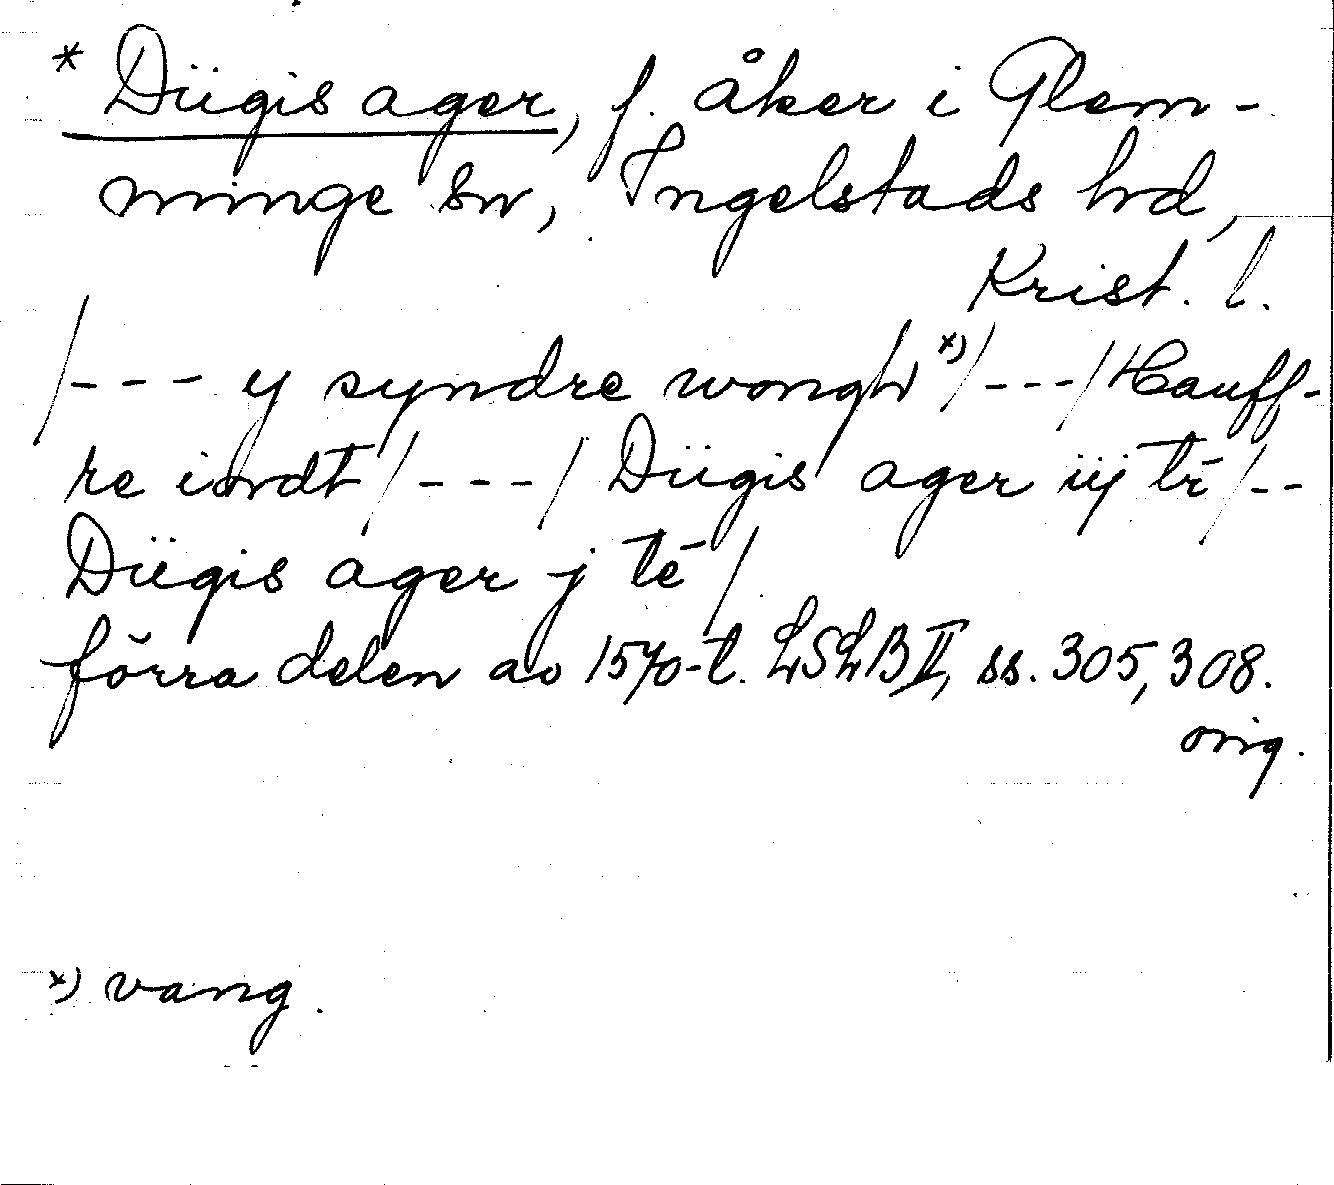 * Dügis ager, f. åker i Glem-
minge sn, Ingelstads hrd,
Krist. l.
/--- y syndre wongh x)/---/Hauff-
re iordt/---/Dügis ager iij tr̄/--
Dügis ager j tē/
förra delen av 1570-t. LSLB II, ss. 305, 308.
orig.
x) vang.